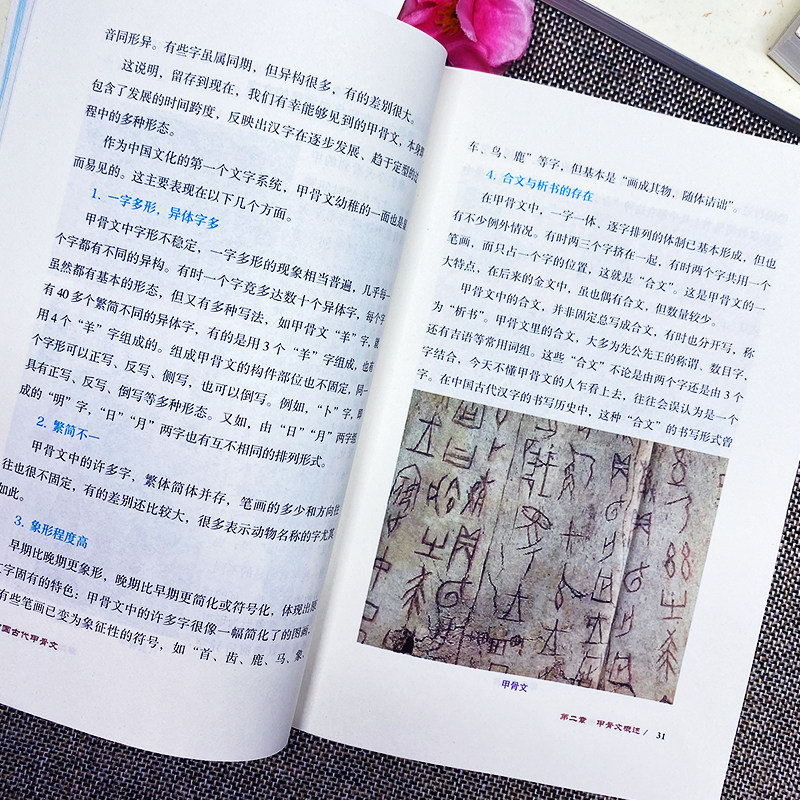 音同形异。有些字虽属同期，但异构很多，有的差别很大。
这说明，留存到现在、我们有幸能够见到的甲骨文，本身即
包含了发展的时间跨度，反映出汉字在逐步发展、趋于定型的过
程中的多种形态。
作为中国文化的第一个文字系统，甲骨文幼稚的一面也是显
而易见的。这主要表现在以下几个方面。
1. 一字多形，异体字多
甲骨文中字形不稳定，一字多形的现象相当普遍，几乎每一
个字都有不同的异构。有时一个字竟多达数十个异体字，每个字
虽然都有基本的形态，但又有多种写法，如甲骨文“羊”字，
有40多个繁简不同的异体字，有的是用3个“羊”字组成，也有
用4个“羊”字组成的。组成甲骨文的构件部位也不固定，同一
个字形可以正写、反写、侧写，也可以倒写。例如，“卜”字，即
具有正写、反写、倒写等多种形态。又如，由“日”“月”两字组
成的“明”字，“日”“月”两字也有互不相同的排列形式。
2. 繁简不一
甲骨文中的许多字，繁体简体并存，笔画的多少和方向往
往也很不固定，有的差别还比较大，很多表示动物名称的字尤其
如此。
3. 象形程度高
早期比晚期更象形，晚期比早期更简化或符号化，体现出
文字固有的特色；甲骨文中的许多字很像一幅简化了的图画，
有些笔画已变为象征性的符号，如“首、齿、鹿、马、象、
国古代甲骨文
车、鸟、鹿”等字，但基本是“画成其物，随体诘诎”。
4. 合文与析书的存在
在甲骨文中，一字一体、逐字排列的体制已基本形成，但也
有不少例外情况。有时两三个字挤在一起，有时两个字共用一个
笔画，而只占一个字的位置，这就是“合文”。这是甲骨文的一
大特点，在后来的金文中，虽也偶有合文，但数量较少。
甲骨文中的合文，并非固定总写成合文，有时也分开写，称
为“析书”。甲骨文里的合文，大多为先公先王的称谓、数目字，
还有吉语等常用词组。这些“合文”不论是由两个字还是由3个
字结合，今天不懂甲骨文的人乍看上去，往往会误认为是一个
字。在中国古代汉字的书写历史中，这种“合文”的书写形式曾
甲骨文
第二章 甲骨文概述 / 31